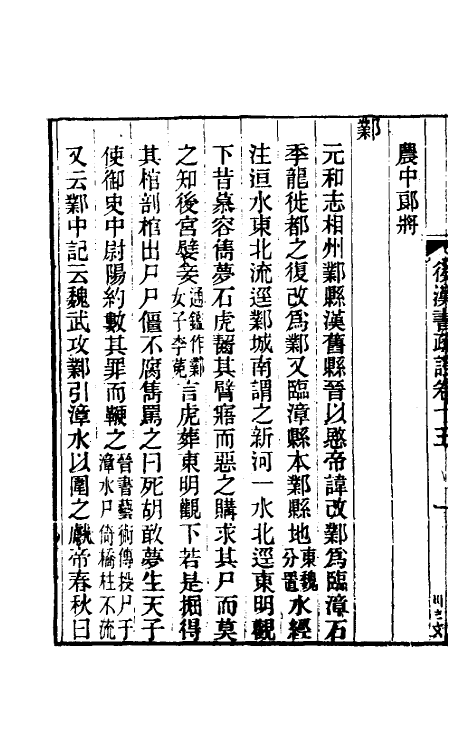 後漢書疏證卷十五
農中郎將
鄴
元和志相州鄴縣漢舊縣晉以愍帝諱改鄴爲臨漳石
季龍徙都之復改爲鄴又臨漳縣本鄴縣地東魏分置水經
注洹水東北流逕鄴城南謂之新河一水北逕東明觀
下昔慕容儁夢石虎齧其臂寤而惡之購求其尸而莫
之知後宮嬖妾通鑑作鄴女子李菟言虎葬東明觀下若是掘得
其棺剖棺出尸尸僵不腐儁罵之曰死胡敢夢生天子
使御史中尉陽約數其罪而鞭之晉書藝術傳投尸于漳水尸倚橋柱不流
又云鄴中記云魏武攻鄴引漳水以圍之獻帝春秋曰